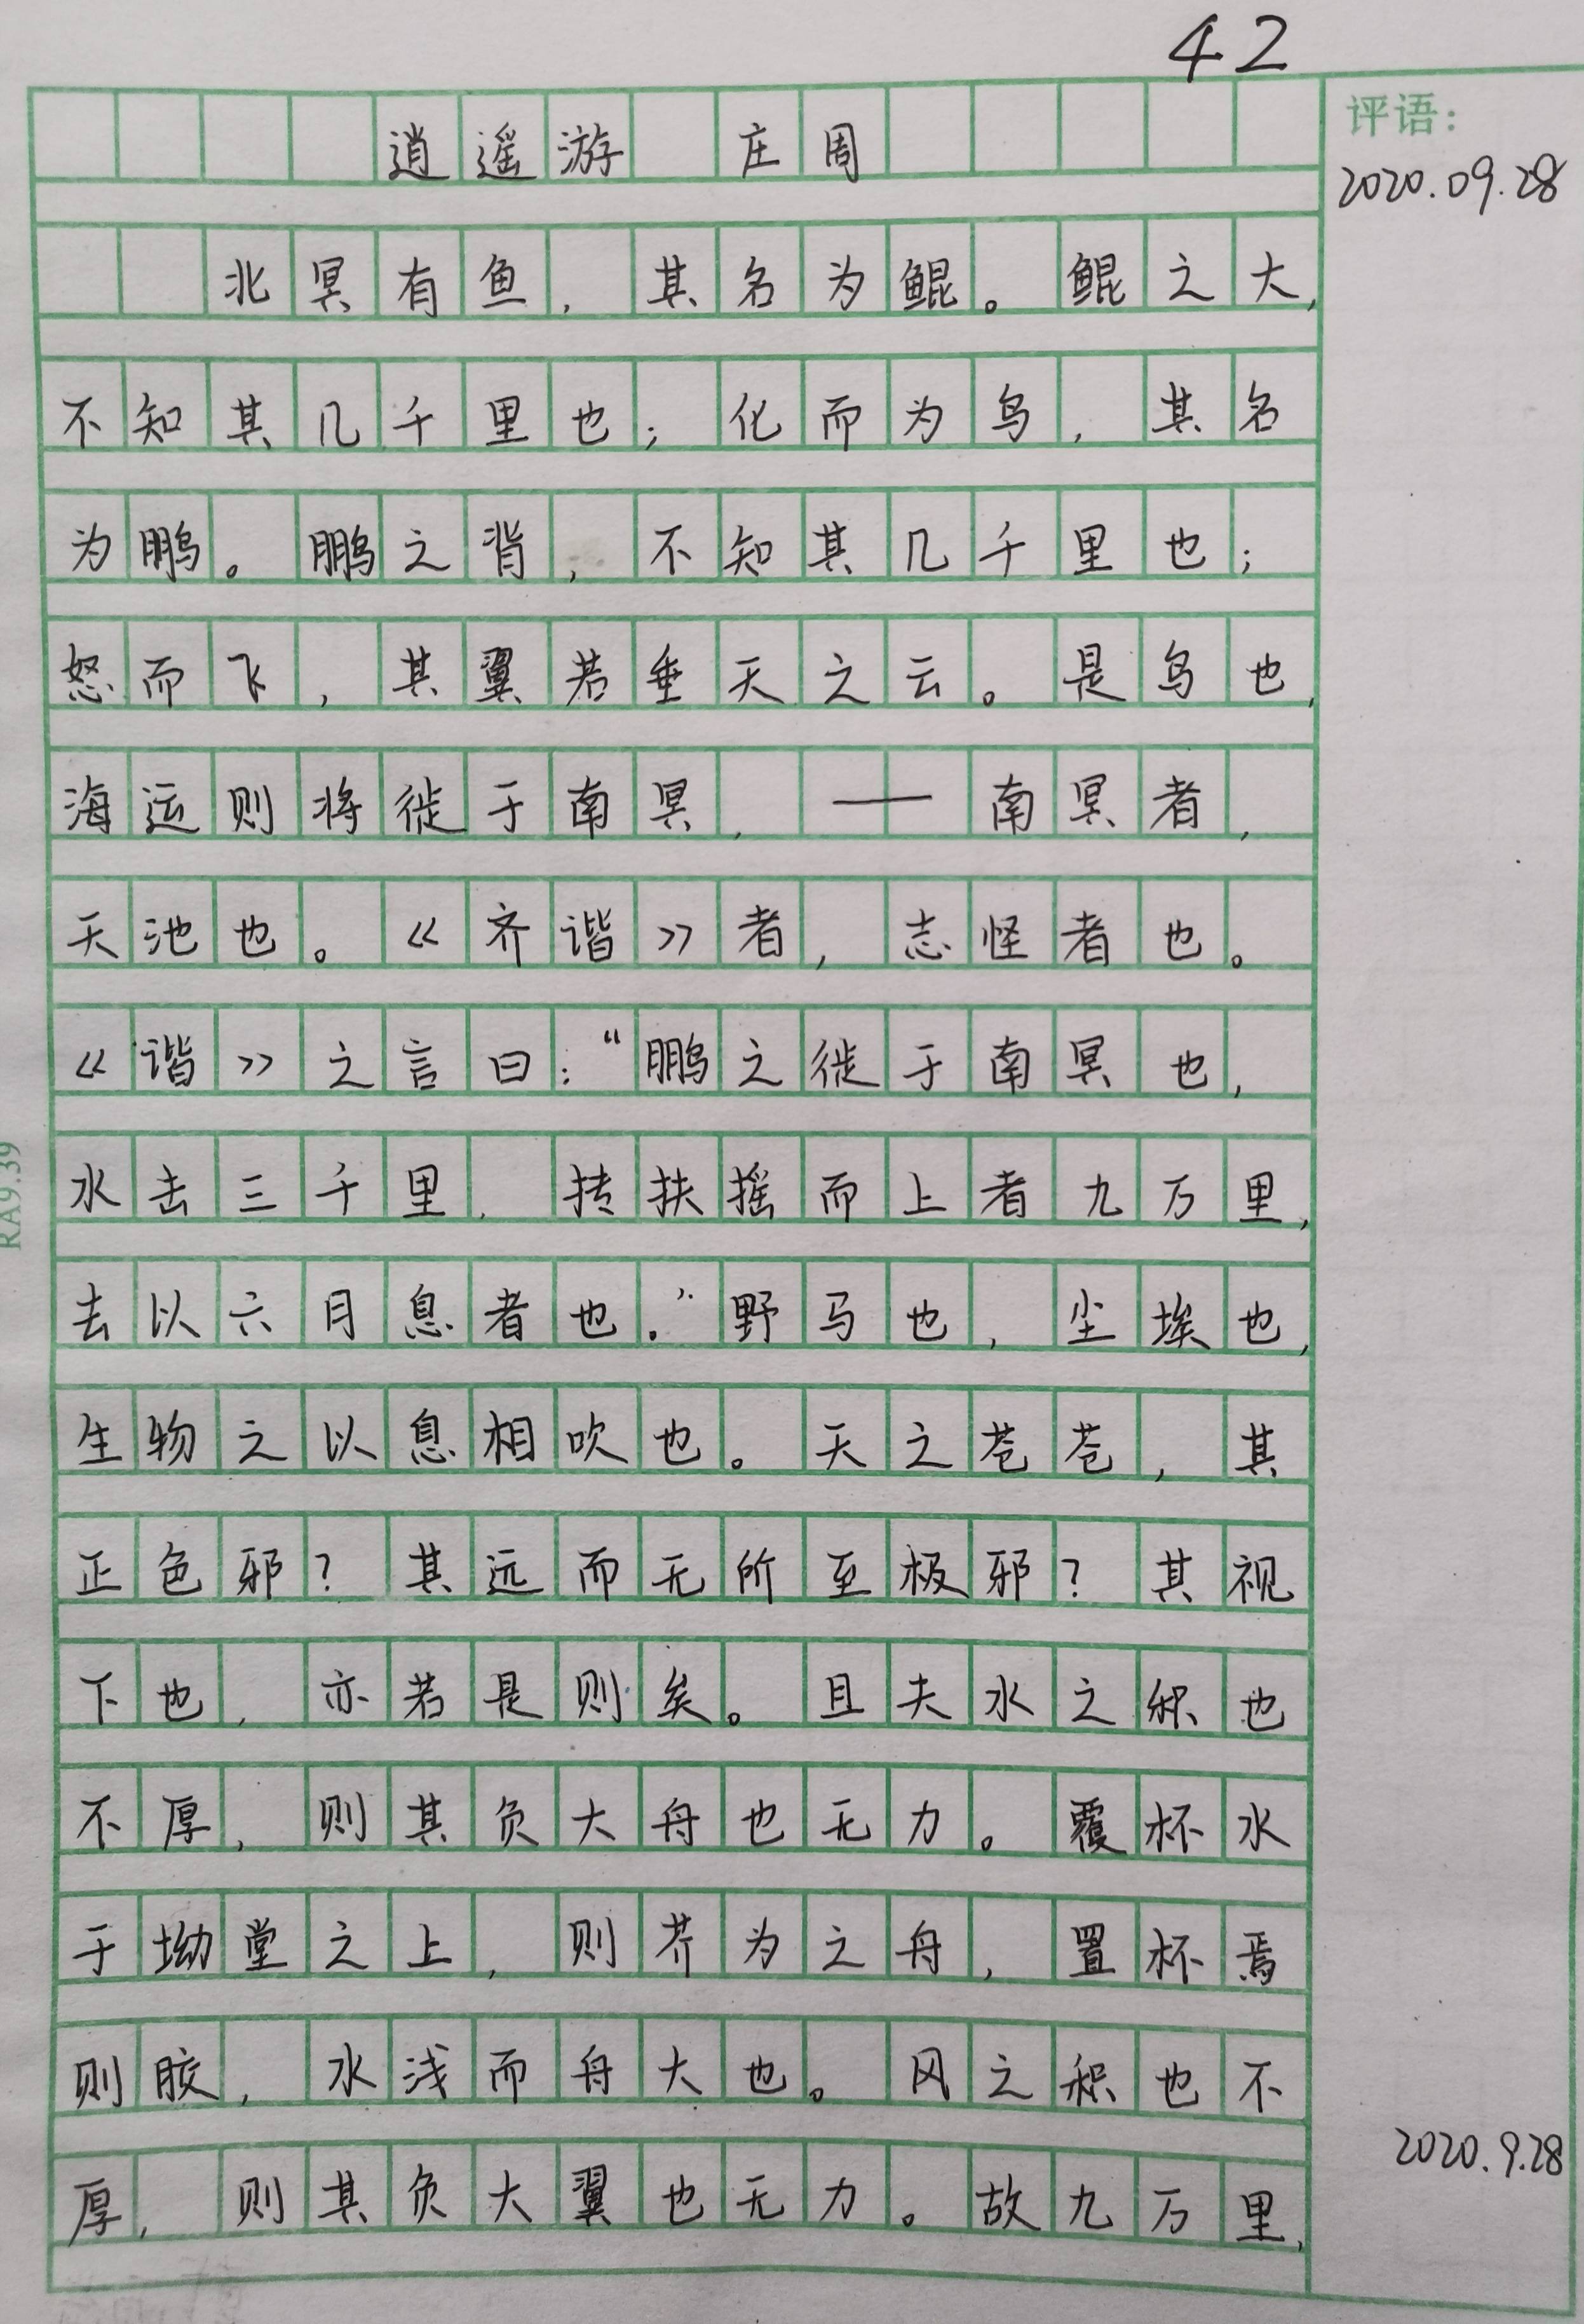 42
逍遥游 庄周
评语：
2020.09.28
北冥有鱼，其名为鲲。鲲之大，
不知其几千里也；化而为鸟，其名
为鹏。鹏之背，不知其几千里也；
怒而飞，其翼若垂天之云。是鸟也，
海运则将徙于南冥，——南冥者，
天池也。《齐谐》者，志怪者也。
《谐》之言曰：“鹏之徙于南冥也，
水击三千里，抟扶摇而上者九万里，
去以六月息者也。”野马也，尘埃也，
生物之以息相吹也。天之苍苍，其
正色邪？其远而无所至极邪？其视
下也，亦若是则矣。且夫水之积也
不厚，则其负大舟也无力。覆杯水
于坳堂之上，则芥为之舟，置杯焉
则胶，水浅而舟大也。风之积也不
厚，则其负大翼也无力。故九万里，
2020.9.28
RA9.39